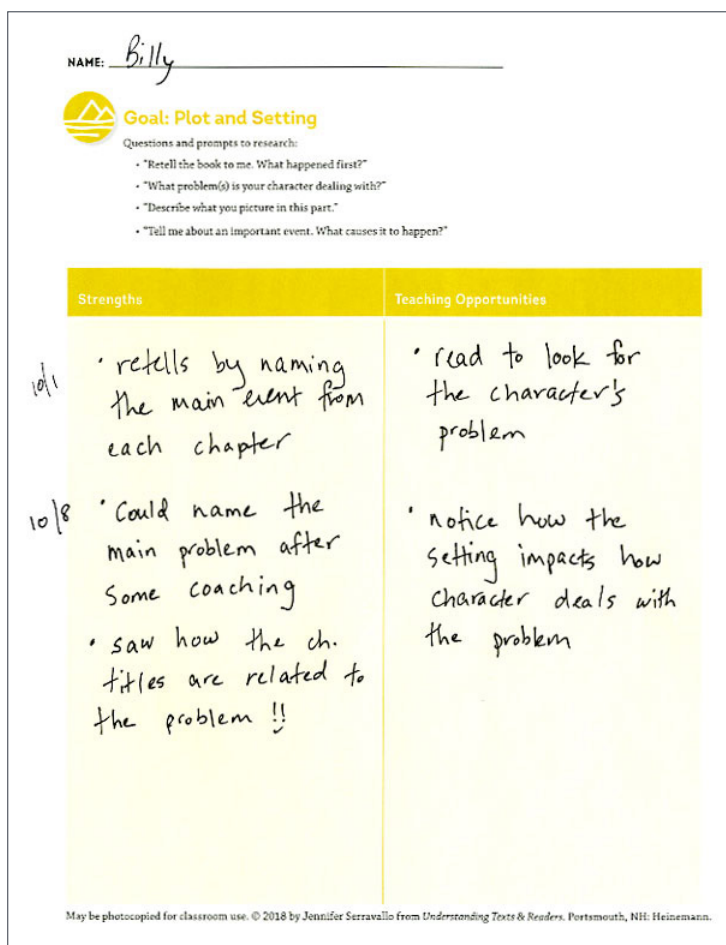 NAME: Billy
Goal: Plot and Setting
Questions and prompts to research:
• "Retell the book to me. What happened first?"
• "What problem(s) is your character dealing with?"
• "Describe what you picture in this part."
• "Tell me about an important event. What causes it to happen?"
Strengths
10/1
• retells by naming
the main event from
each chapter
10/8
• Could name the
main problem after
some coaching
• saw how the ch.
titles are related to
the problem !!
Teaching Opportunities
• read to look for
the character's
problem
• notice how the
setting impacts how
character deals with
the problem
May be photocopied for classroom use. © 2018 by Jennifer Serravallo from Understanding Texts & Readers. Portsmouth, NH: Heinemann.